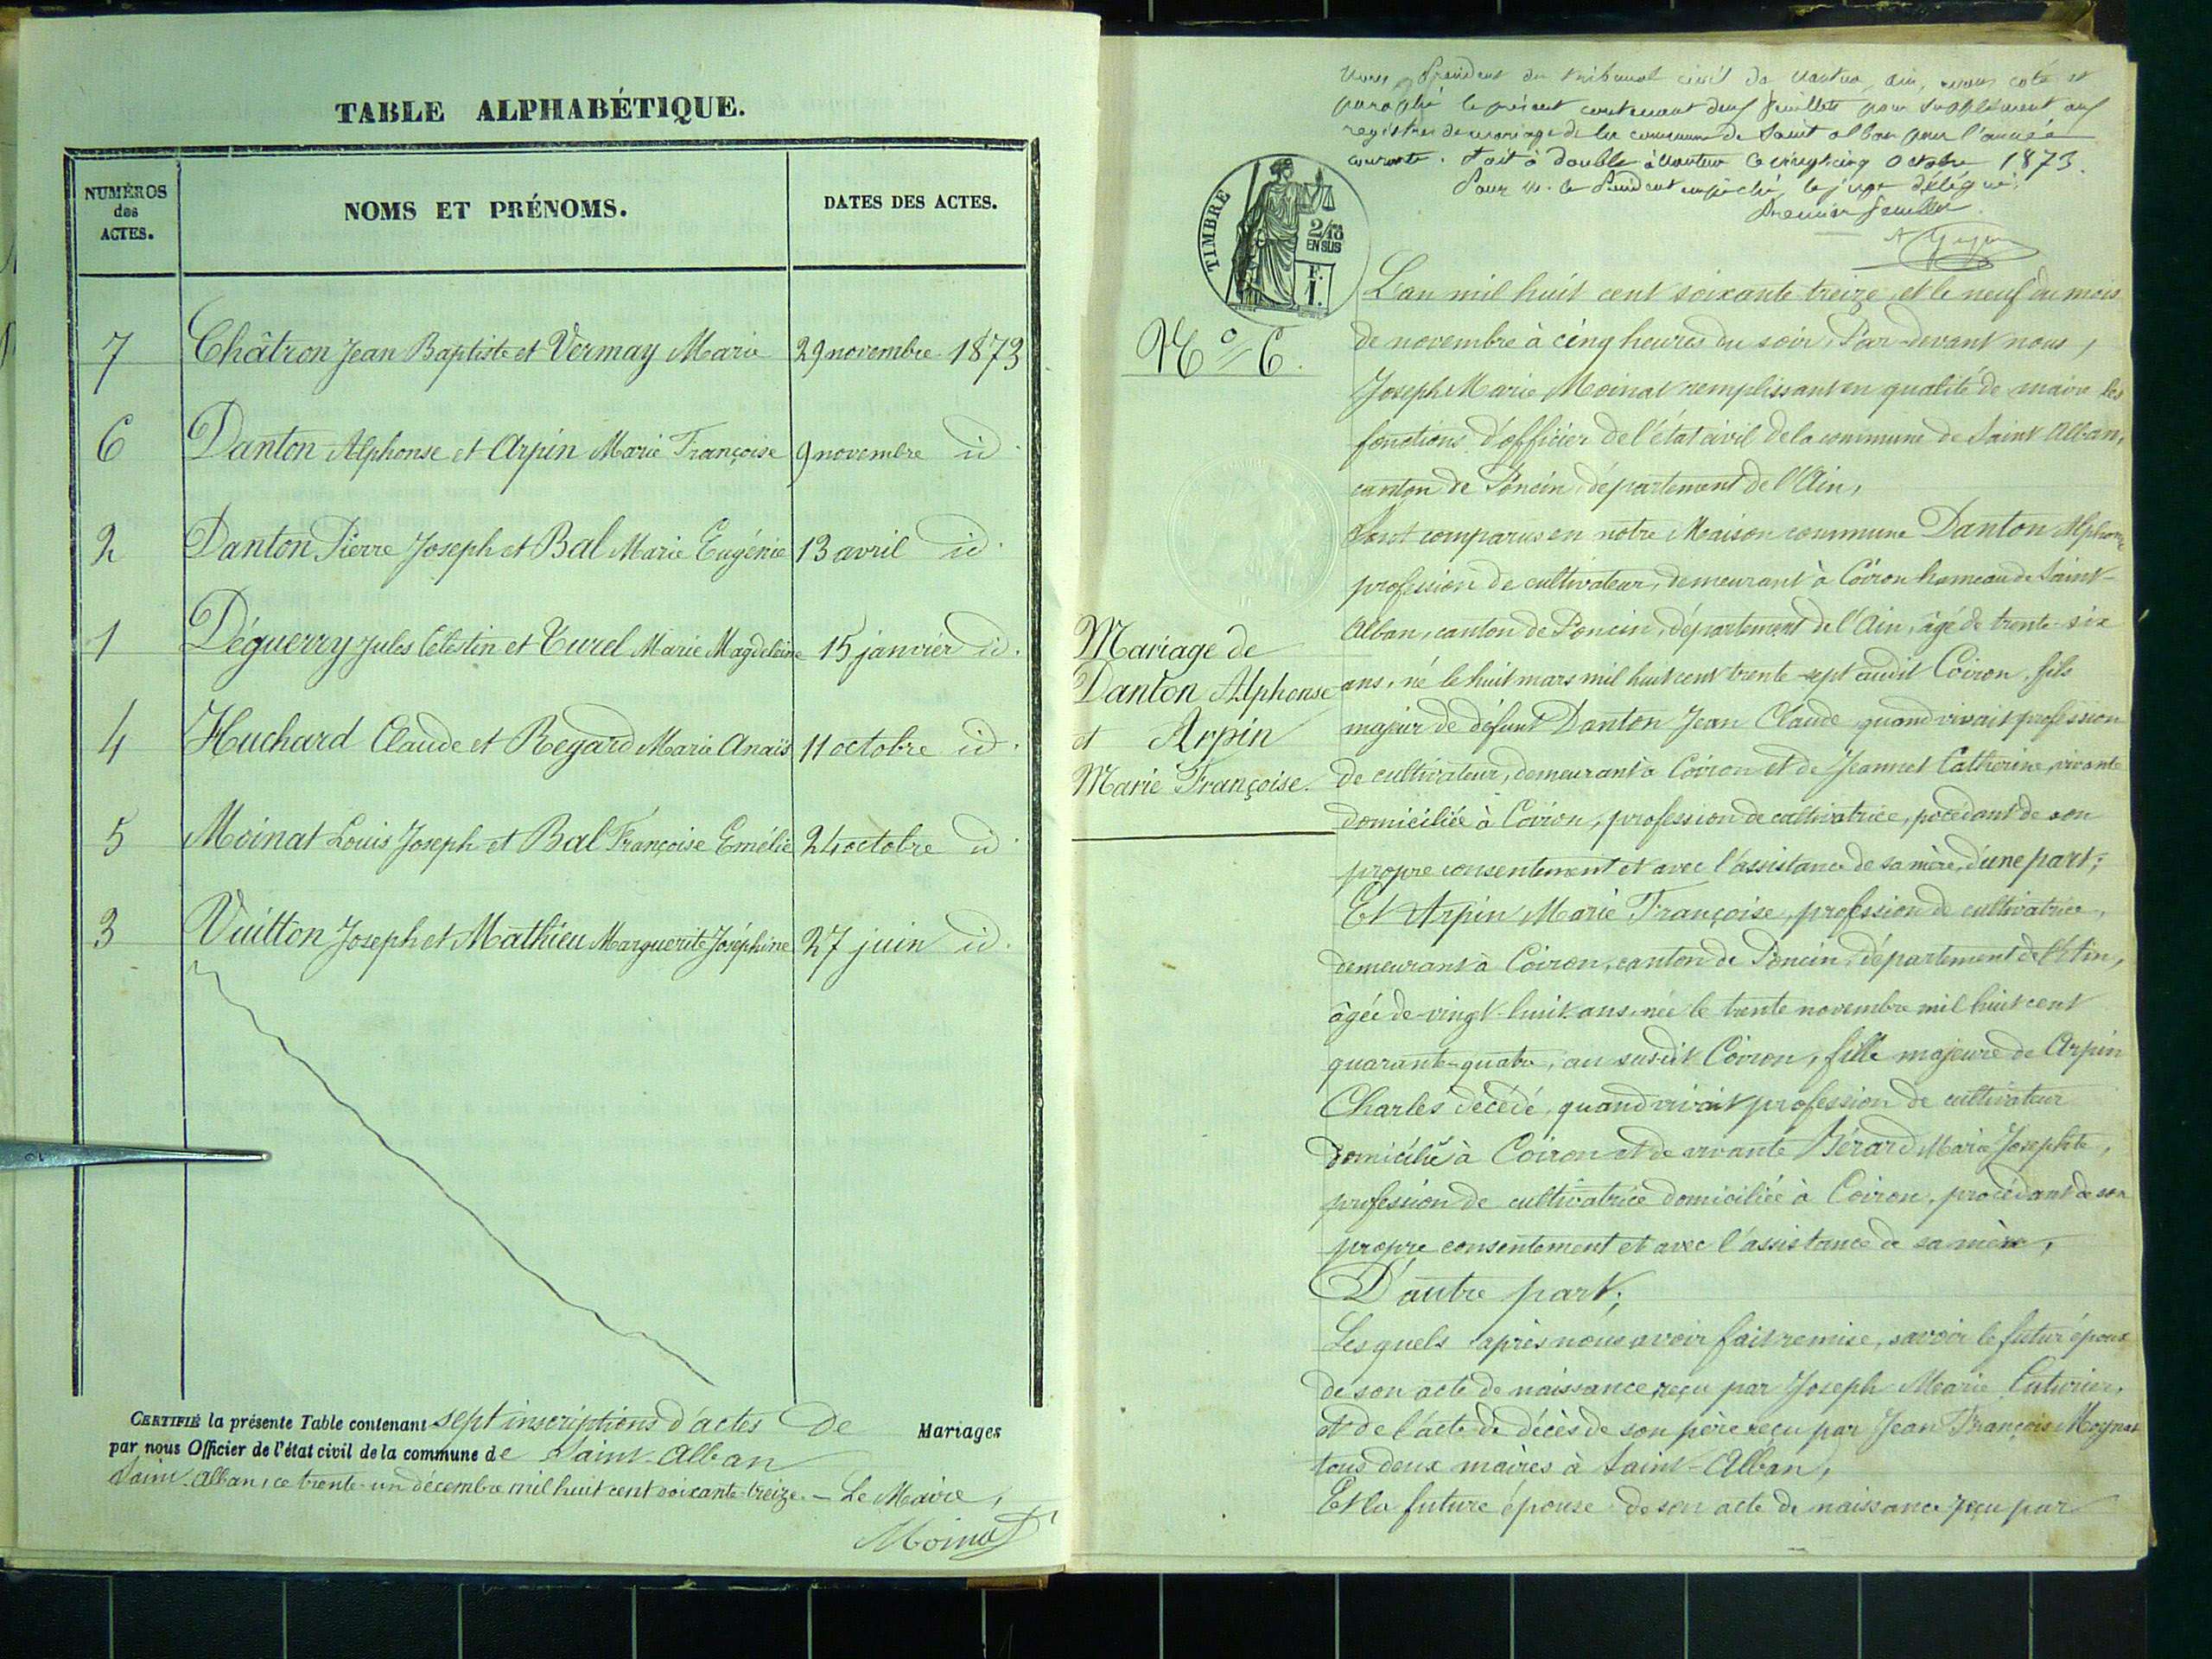 TABLE ALPHABÉTIQUE.
NUMÉROS des ACTES.
NOMS ET PRÉNOMS.
DATES DES ACTES.
7 Châtron Jean Baptiste et Vermay Marie 29 novembre 1873
6 Danton Alphonse et Arpin Marie Françoise 9 novembre id.
2 Danton Pierre Joseph et Bal Marie Eugénie 13 avril id.
1 Déguerry Jules Célestin et Turel Marie Magdeleine 15 janvier id.
4 Huchard Claude et Regard Marie Anaïs 11 octobre id.
5 Moinat Louis Joseph et Bal Françoise Emélie 24 octobre id.
3 Vuitton Joseph et Mathieu Marguerite Joséphine 27 juin id.
CERTIFIÉ la présente Table contenant sept inscriptions d'actes de Mariages
par nous Officier de l'état civil de la commune de Saint-Alban
Saint-Alban, ce trente-un décembre mil huit cent soixante-treize. — Le Maire,
Moinat
Nous Président du tribunal civil de Nantua, Ain, avons coté et
paraphé le présent contenant deux feuillets pour supplément aux
registres de mariage de la commune de Saint alban pour l'année
courante. Fait à double à Nantua le vingt cinq Octobre 1873.
Pour M. le Président empêché, le juge délégué.
Premier feuillet
TIMBRE
2/10
EN SUS
F.
1.
N° 6.
Mariage de
Danton Alphonse
et Arpin
Marie Françoise.
L'an mil huit cent soixante-treize, et le neuf du mois
de novembre à cinq heures du soir, Par-devant nous,
Joseph Marie Moinat remplissant en qualité de maire les
fonctions d'officier de l'état civil de la commune de Saint Alban,
canton de Poncin, département de l'Ain,
Sont comparus en notre Maison commune Danton Alphonse
profession de cultivateur, demeurant à Coiron hameau de Saint-
Alban, canton de Poncin, département de l'Ain, âgé de trente-six
ans, né le huit mars mil huit cent trente-sept audit Coiron, fils
majeur de défunt Danton Jean Claude quand vivait profession
de cultivateur, demeurant à Coiron et de Jeannet Catherine, vivante
domiciliée à Coiron, profession de cultivatrice, procédant de son
propre consentement et avec l'assistance de sa mère, d'une part;
Et Arpin Marie Françoise, profession de cultivatrice,
demeurant à Coiron, canton de Poncin, département de l'Ain,
âgée de vingt-huit ans, née le trente novembre mil huit cent
quarante-quatre, au susdit Coiron, fille majeure de Arpin
Charles décédé, quand vivait profession de cultivateur
domicilié à Coiron et de vivante Bérard Marie Josephte,
profession de cultivatrice domiciliée à Coiron, procédant de son
propre consentement et avec l'assistance de sa mère,
D'autre part;
Lesquels après nous avoir fait remise, savoir le futur époux
de son acte de naissance reçu par Joseph Marie Cuturier,
et de l'acte de décès de son père reçu par Jean François Moynat
tous deux maires à Saint-Alban,
Et la future épouse de son acte de naissance reçu par